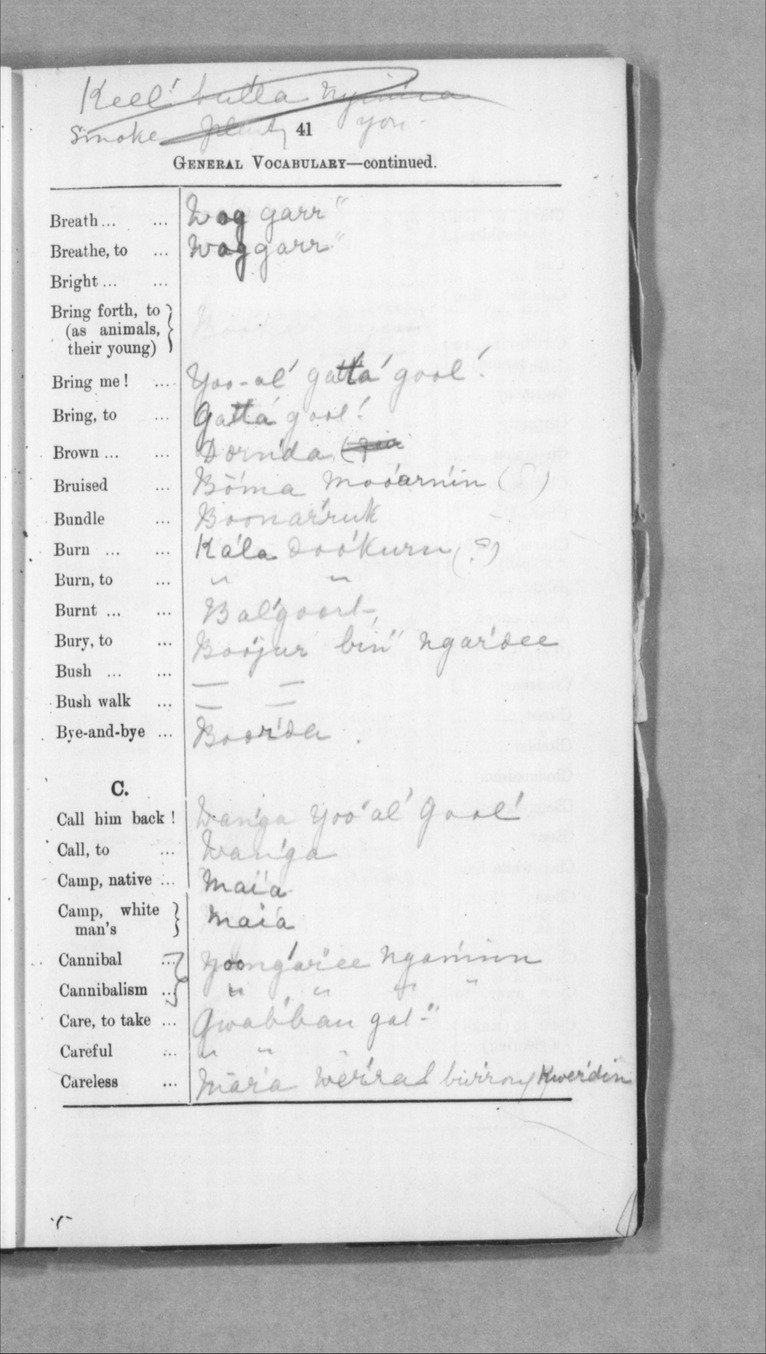 Keel' butla nyinna
smoke plenty you
41
GENERAL VOCABULARY—continued.
Breath... ... Wog garr"
Breathe, to ... Waggarr"
Bright ... ...
Bring forth, to
(as animals,
their young)
Bring me! ... Yoo-al' gatta' gool'
Bring, to ... Gatta' gool'
Brown ... ... Dorn'da
Bruised ... Bō'ma mooarnin (?)
Bundle ... Boonar'ruk
Burn ... ... Ka'la doo'kurn (?)
Burn, to ... " "
Burnt ... ... Bal'goort
Bury, to ... Boojur bin" ngar'dee
Bush ... ... — —
Bush walk ... — —
Bye-and-bye ... Boor'da.
C.
Call him back! Wan'ga yoo'al' gool'
Call, to ... Wan'ga
Camp, native ... Mai'a
Camp, white
man's Maia
Cannibal ... Yoong'ar'ee ngannin
Cannibalism ... " " " "
Care, to take ... Gwab'ban gal"
Careful ... " " "
Careless ... Mar'a wer'ra Kwer'din